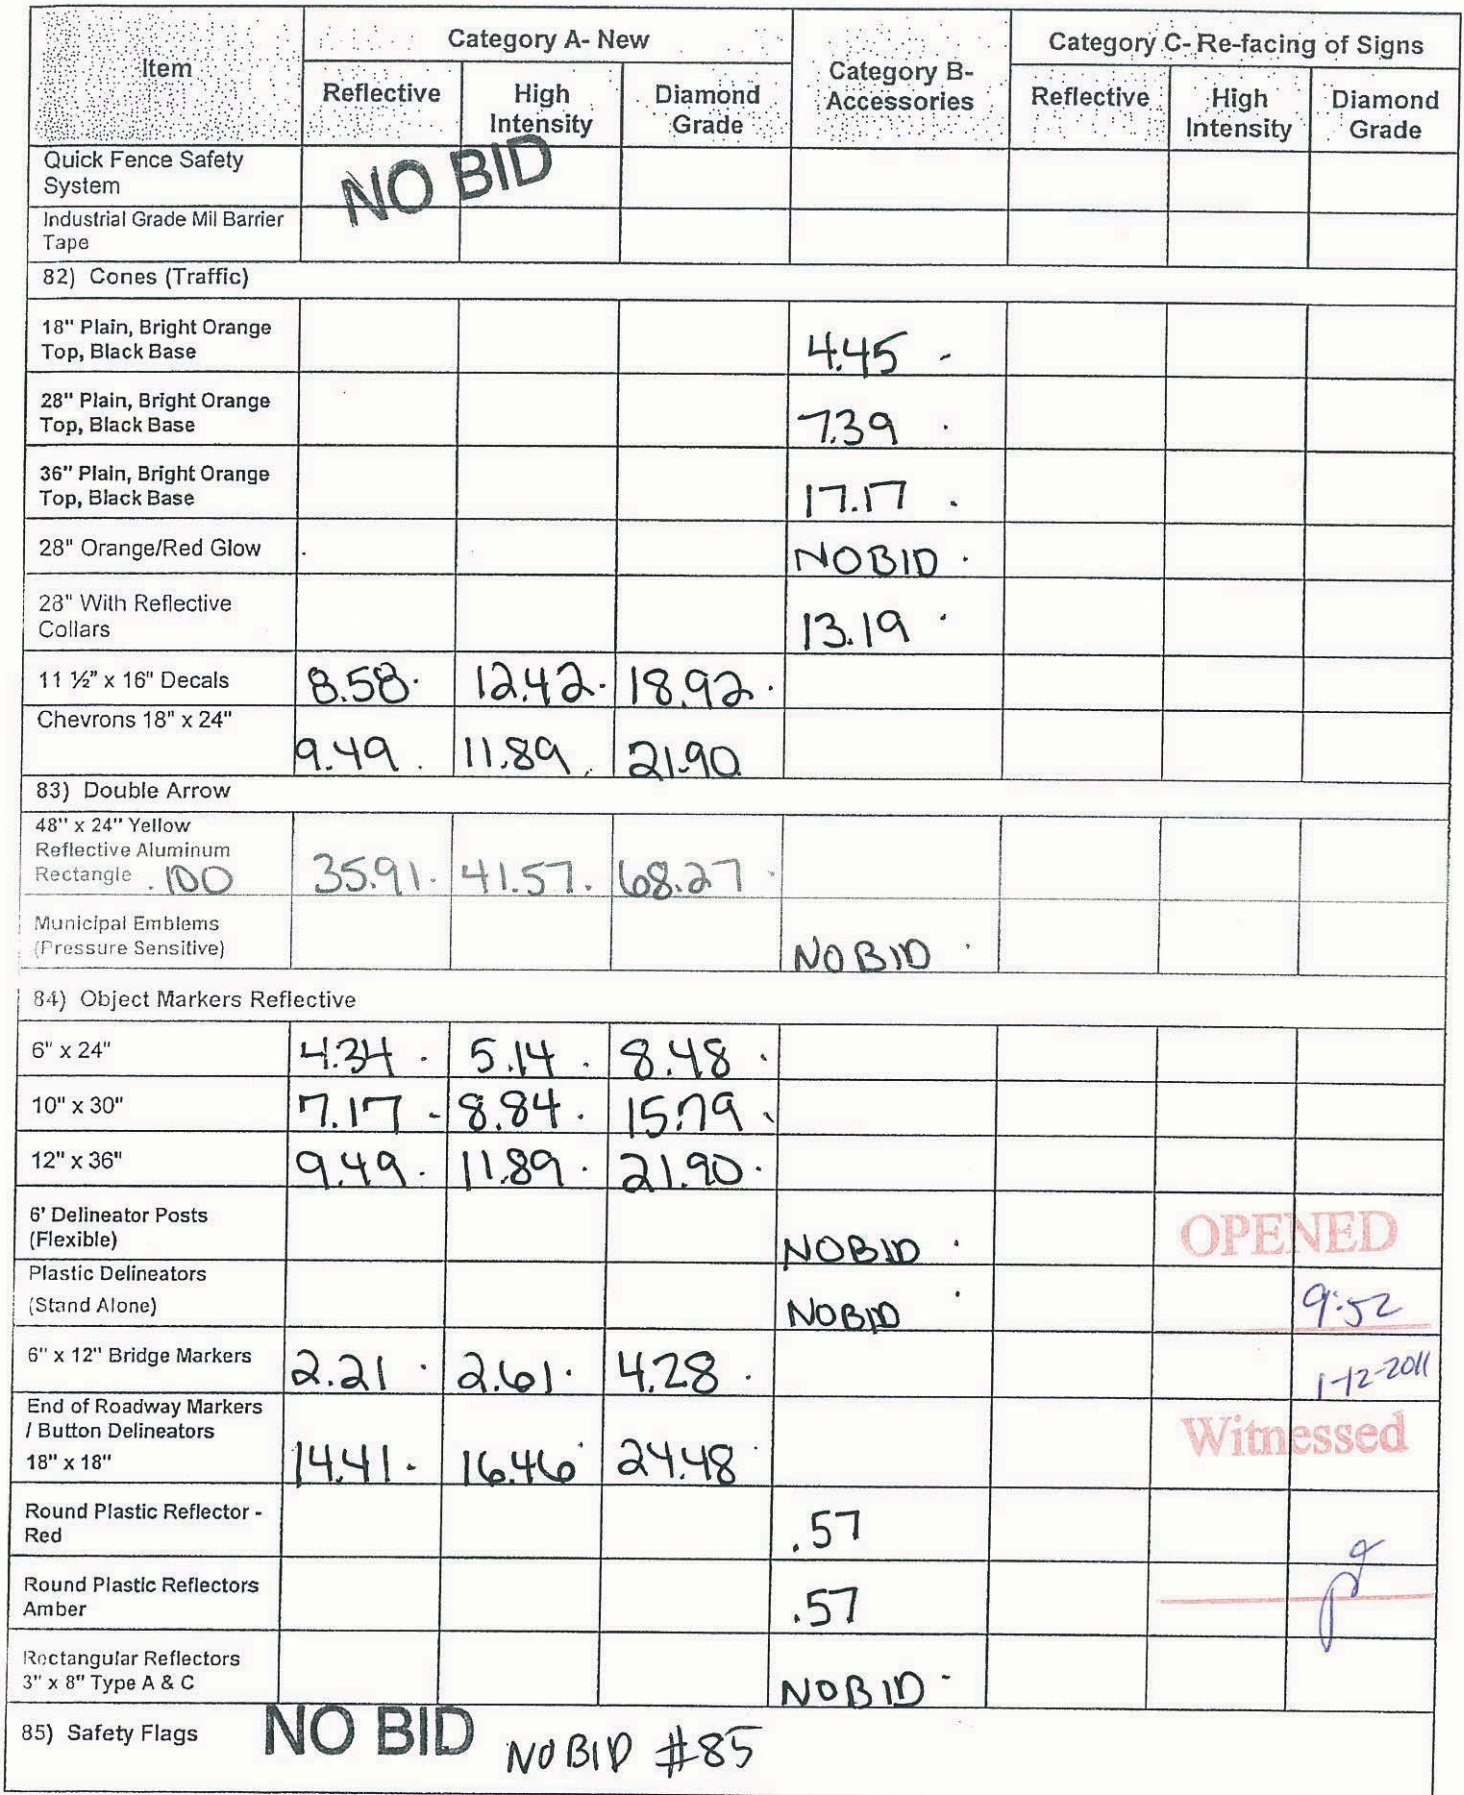 Item
Category A- New
Category B-
Accessories
Category C- Re-facing of Signs
Reflective
High
Intensity
Diamond
Grade
Reflective
High
Intensity
Diamond
Grade
Quick Fence Safety
System
NO BID
Industrial Grade Mil Barrier
Tape
82) Cones (Traffic)
18" Plain, Bright Orange
Top, Black Base
4.45
28" Plain, Bright Orange
Top, Black Base
7.39
36" Plain, Bright Orange
Top, Black Base
17.17
28" Orange/Red Glow
NO BID
28" With Reflective
Collars
13.19
11 ½" x 16" Decals 8.58 12.42 18.92
Chevrons 18" x 24"
9.49 11.89 21.90
83) Double Arrow
48" x 24" Yellow
Reflective Aluminum
Rectangle .100 35.91 41.57 68.27
Municipal Emblems
(Pressure Sensitive)
NO BID
84) Object Markers Reflective
6" x 24" 4.34 5.14 8.48
10" x 30" 7.17 8.84 15.79
12" x 36" 9.49 11.89 21.90
6' Delineator Posts
(Flexible)
NO BID
OPENED
Plastic Delineators
(Stand Alone)
NO BID
9:52
6" x 12" Bridge Markers 2.21 2.61 4.28
1-12-2011
End of Roadway Markers
/ Button Delineators
18" x 18" 14.41 16.46 24.48
Witnessed
Round Plastic Reflector -
Red
.57
Round Plastic Reflectors
Amber
.57
Rectangular Reflectors
3" x 8" Type A & C
NO BID
85) Safety Flags NO BID NO BID #85